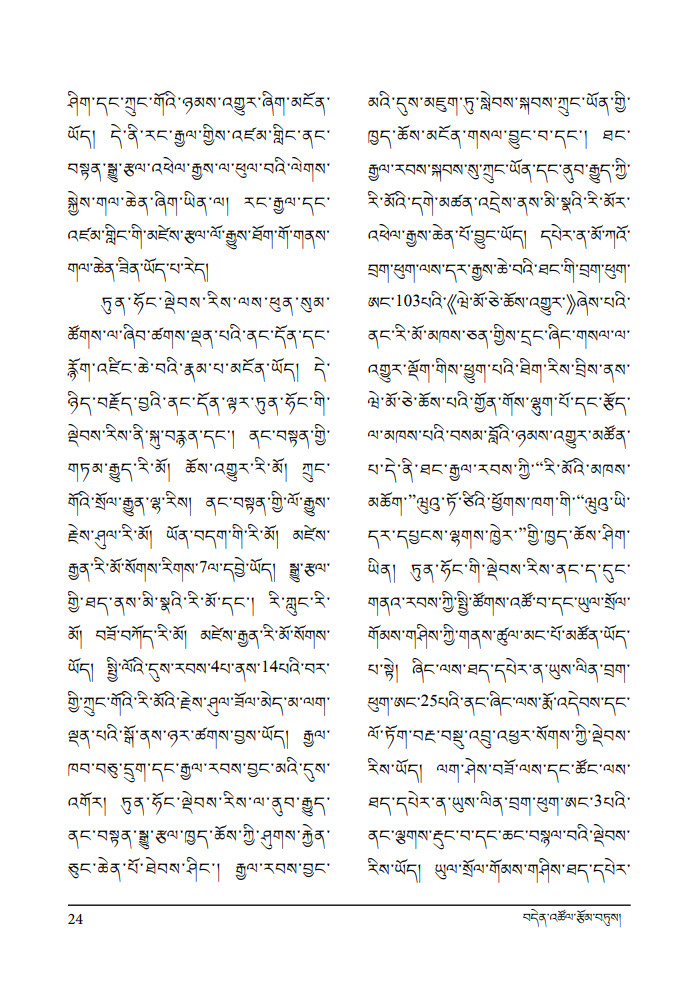 ཤིག་དང་ཀྲུང་གོའི་ཉམས་འགྱུར་ཞིག་མངོན་
ཡོད། དེ་ནི་རང་རྒྱལ་གྱིས་འཛམ་གླིང་ནང་
བསྟན་སྒྱུ་རྩལ་འཕེལ་རྒྱས་ལ་ཕུལ་བའི་ལེགས་
སྐྱེས་གལ་ཆེན་ཞིག་ཡིན་ལ། རང་རྒྱལ་དང་
འཛམ་གླིང་གི་མཛེས་རྩལ་ལོ་རྒྱུས་ཐོག་གོ་གནས་
གལ་ཆེན་ཟིན་ཡོད་པ་རེད།
ཏུན་ཧོང་ལྡེབས་རིས་ལས་ཕུན་སུམ་
ཚོགས་ལ་ཞིབ་ཚགས་ལྡན་པའི་ནང་དོན་དང་
རྙོག་འཛིང་ཆེ་བའི་རྣམ་པ་མངོན་ཡོད། དེ་
ཉིད་བརྗོད་བྱའི་ནང་དོན་ལྟར་ཏུན་ཧོང་གི་
ལྡེབས་རིས་ནི་སྐུ་བརྙན་དང་། ནང་བསྟན་གྱི་
གཏམ་རྒྱུད་རི་མོ། ཆོས་འགྱུར་རི་མོ། ཀྲུང་
གོའི་སྲོལ་རྒྱུན་ལྷ་རིས། ནང་བསྟན་གྱི་ལོ་རྒྱུས་
རྗེས་ཤུལ་རི་མོ། ཡོན་བདག་གི་རི་མོ། མཛེས་
རྒྱན་རི་མོ་སོགས་རིགས་7ལ་དབྱེ་ཡོད། སྒྱུ་རྩལ་
གྱི་ཐད་ནས་མི་སྣའི་རི་མོ་དང་། རི་ཀླུང་རི་
མོ། བཟོ་བཀོད་རི་མོ། མཛེས་རྒྱན་རི་མོ་སོགས་
ཡོད། སྤྱི་ལོའི་དུས་རབས་4པ་ནས་14པའི་བར་
གྱི་ཀྲུང་གོའི་རི་མོའི་རྗེས་ཤུལ་ཟོལ་མེད་མ་ལག་
ལྡན་པའི་སྒོ་ནས་ཉར་ཚགས་བྱས་ཡོད། རྒྱལ་
ཁབ་བཅུ་དྲུག་དང་རྒྱལ་རབས་བྱང་མའི་དུས་
འགོར། ཏུན་ཧོང་ལྡེབས་རིས་ལ་ནུབ་རྒྱུད་
ནང་བསྟན་སྒྱུ་རྩལ་ཁྱད་ཆོས་ཀྱི་ཤུགས་རྐྱེན་
ཅུང་ཆེན་པོ་ཐེབས་ཤིང་། རྒྱལ་རབས་བྱང་
མའི་དུས་མཇུག་ཏུ་སླེབས་སྐབས་ཀྲུང་ཡོན་གྱི་
ཁྱད་ཆོས་མངོན་གསལ་བྱུང་བ་དང་། ཐང་
རྒྱལ་རབས་སྐབས་སུ་ཀྲུང་ཡོན་དང་ནུབ་རྒྱུད་ཀྱི་
རི་མོའི་དགེ་མཚན་འདྲེས་ནས་མི་སྣའི་རི་མོར་
འཕེལ་རྒྱས་ཆེན་པོ་བྱུང་ཡོད། དཔེར་ན་མོ་ཀའོ་
བྲག་ཕུག་ལས་དར་རྒྱས་ཆེ་བའི་ཐང་གི་བྲག་ཕུག་
ཨང་103པའི་《ཝེ་མོ་ཅེ་ཆོས་འགྱུར་》ཞེས་པའི་
ནང་རི་མོ་མཁས་ཅན་གྱིས་དྲང་ཞིང་གསལ་ལ་
འགྱུར་ལྡོག་གིས་ཕྱུག་པའི་ཐིག་རིས་བྲིས་ནས་
ཝེ་མོ་ཅེ་ཆོས་པའི་གྱོན་གོས་ལྷུག་པོ་དང་རྩོད་
ལ་མཁས་པའི་བསམ་བློའི་ཉམས་འགྱུར་མཚོན་
པ་དེ་ནི་ཐང་རྒྱལ་རབས་ཀྱི་“རི་མོའི་མཁས་
མཆོག་”ཝུའུ་ཏོ་ཙིའི་ཕྱོགས་ཁག་གི་“ཝུའུ་ཡི་
དར་དཔྱངས་ལྷགས་ཁྱེར་”གྱི་ཁྱད་ཆོས་ཤིག་
ཡིན། ཏུན་ཧོང་གི་ལྡེབས་རིས་ནང་ད་དུང་
གནའ་རབས་ཀྱི་སྤྱི་ཚོགས་འཚོ་བ་དང་ཡུལ་སྲོལ་
གོམས་གཤིས་ཀྱི་གནས་ཚུལ་མང་པོ་མཚོན་ཡོད་
པ་སྟེ། ཞིང་ལས་ཐད་དཔེར་ན་ཡུས་ལིན་བྲག་
ཕུག་ཨང་25པའི་ནང་ཞིང་ལས་རྨོ་འདེབས་དང་
ལོ་ཏོག་བརྔ་བསྡུ་འབྲུ་འཕྱར་སོགས་ཀྱི་ལྡེབས་
རིས་ཡོད། ལག་ཤེས་བཟོ་ལས་དང་ཚོང་ལས་
ཐད་དཔེར་ན་ཡུས་ལིན་བྲག་ཕུག་ཨང་3པའི་
ནང་ལྕགས་རྡུང་བ་དང་ཆང་བསྙལ་བའི་ལྡེབས་
རིས་ཡོད། ཡུལ་སྲོལ་གོམས་གཤིས་ཐད་དཔེར་
24
བདེན་འཚོལ་རྩོམ་བཏུས།